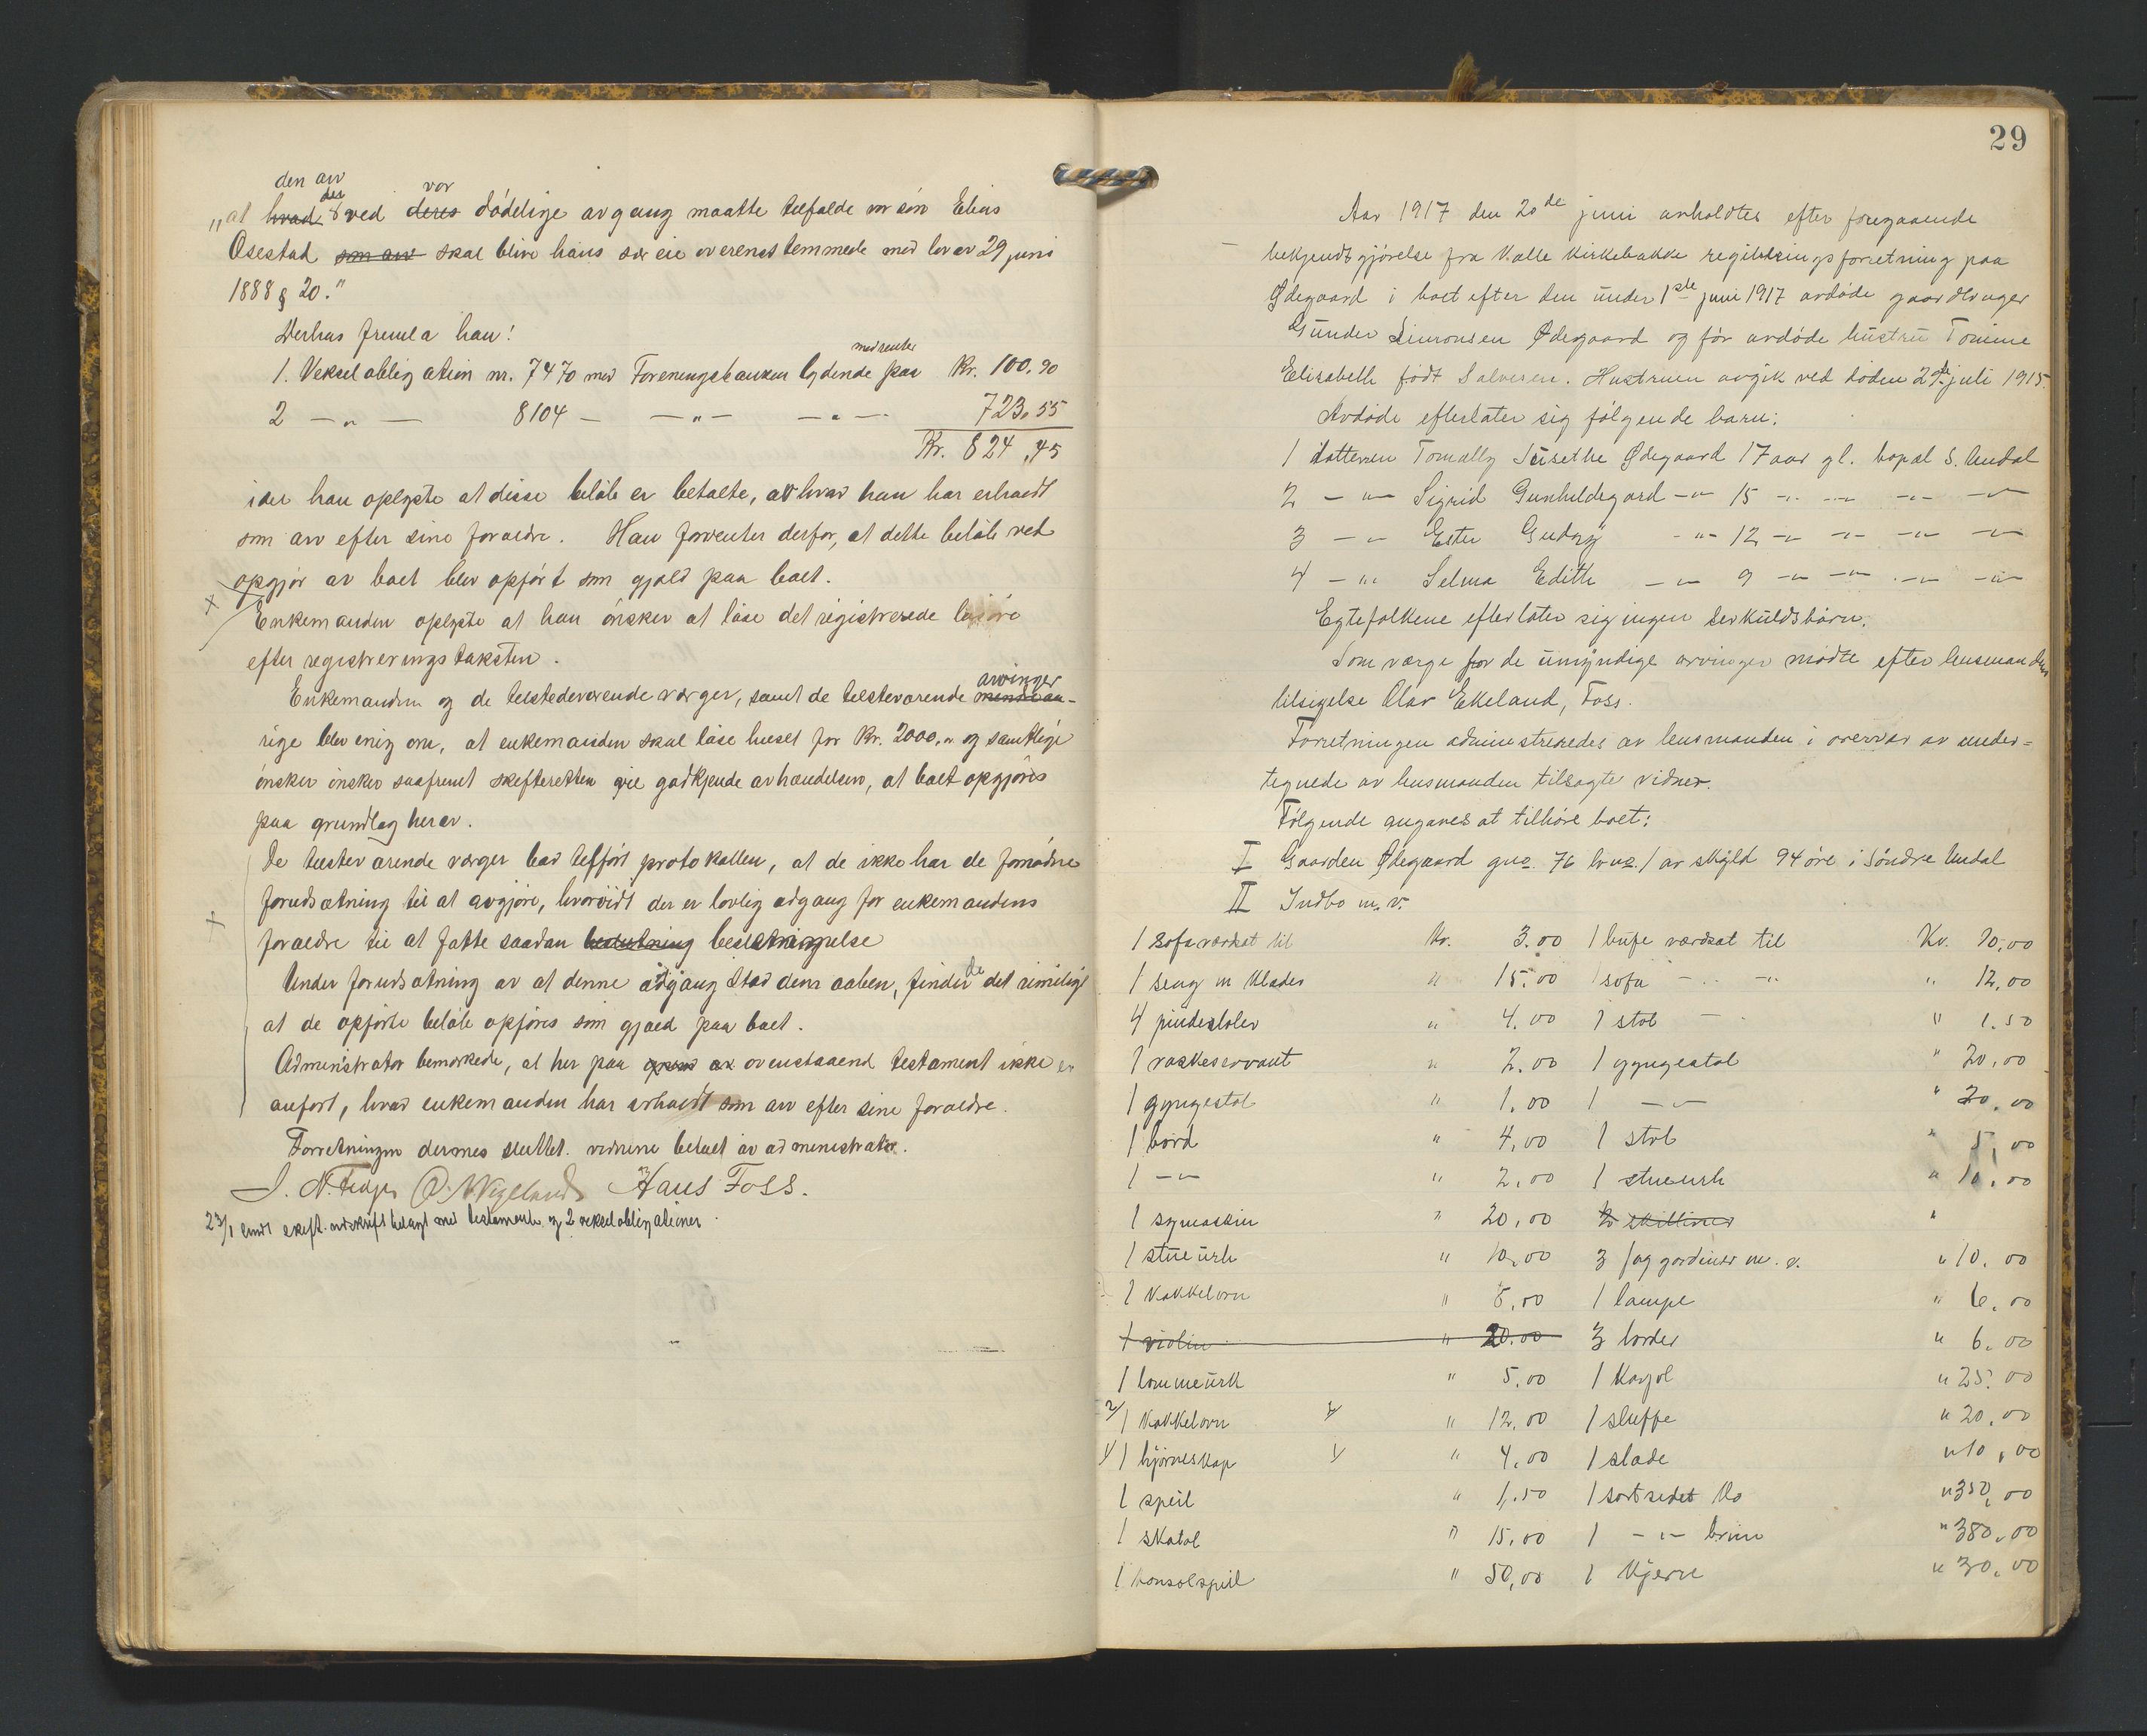 den arv
"at hvad der ved deres vor dödelige avgang maatte tilfalde vor sön Elias
Osestad som arv skal blive hans sær eie overenstemmede med lov av 29 juni
1888 § 20."
Derhos fremla han:
1. Vekselobligation nr. 7470 med Foreningsbanken lydende paa med renter Kr. 100.90
2 -"- 8104 - -"- -"- 723.55
Kr. 824.45
idet han oplyste at disse belöb er betalte, av hvad han har erholdt
som arv efter sine forældre. Han forventer derfor, at dette belöb ved
opgjör av boet blev opfört som gjæld paa boet.
Enkemanden oplyste at han önsker at löse det registrerede lösöre
efter registreringstaksten.
Enkemanden og de tilstedeværende værger, samt de tilsteværende arvinger
rige blev enig om, at enkemanden skal löse huset for Kr. 2000,00 og samtlige
önsker önsker saafremt skifteretten vil godkjende avhændelsen, at boet opgjöres
paa grundlag herav.
De tilsteværende værger bad tilfört protokollen, at de ikke har de fornödne
forudsætning til at avgjöre, hvorvidt der er lovlig adgang for enkemandens
forældre til at fatte saadan beslutning bestemmelse
Under forudsætning av at denne adgang stod dem aaben, finder de det rimelig
at de opförte belöb opföres som gjæld paa boet.
Administrator bemerkede, at her paa ovenstaaend testament ikke er
anfört, hvad enkemanden har erholdt som arv efter sine forældre.
Forretningen dermes sluttet. vidnene betalt av administrator.
Hans Foss.
23/1 sendt skift. utskrift belagt med testamente og 2 vekselobligationer.
29
Aar 1917 den 20de juni avholdtes efter foregaaende
bekjendtgjörelse fra Valle kirkebakke registreringsforretning paa
Ødegaard i boet efter den under 1ste juni 1917 avdöde gaardbruger
Gunder Simonsen Ødegaard og för avdöde hustru Tomine
Elisabeth födt Salvesen. Hustruen avgik ved döden 29de juli 1915.
Avdöde efterlater sig fölgende barn:
1 datteren Tomally Susethe Ødegaard 17 aar gl. bopæl S. Undal
2 -"- Sigrid Gunhildegard -"- 15 -"- -"- -"- -"-
3 -"- Ester Gudny -"- 12 -"- -"- -"- -"-
4 -"- Selma Edith -"- 9 -"- -"- -"- -"-
Egtefolkene efterlater sig ingen serkuldsbörn.
Som værge for de umyndige arvinger mödte efter lensmandens
tilsigelse Olav Ekeland, Foss.
Forretningen administreredes av lensmanden i overvær av under-
tegnede av lensmanden tilsagte vidner.
Fölgende angaves at tilhöre boet:
I Gaarden Ødegaard gno. 76 brno. 1 av skyld 94 öre i Söndre Undal
II Indbo m. v.
1 sofa værdsat til Kr. 3.00 1 bufe værdsat til Kr. 70,00
1 seng m klæder " 15.00 1 sofa -"- " 12,00
4 pindestoler " 4.00 1 stol - " 1.50
1 vaskeservant " 2.00 1 gyngestol " 20,00
1 gyngestol " 1.00 1 -"- " 20,00
1 bord " 4,00 1 stol " 5,00
1 -"- " 2,00 1 stueurh " 10,00
1 symaskin " 20,00 2 skillirier "
1 stueurh " 10,00 3 fag gardiner m. v. " 10.00
1 kakkelovn " 8,00 1 lampe " 6.00
1 violin " 20.00 3 border " 6.00
1 lommeurh " 5.00 1 karjol " 25.00
2/ 1 kakkelovn " 12.00 1 sluffe " 20.00
1/ 1 hjörneskap " 4.00 1 slæde " 10,00
1 speil " 1.50 1 sortsidet ko " 350,00
1 skatol " 15,00 1 -"- brun " 380,00
1 konsolspeil " 50,00 1 kjerre " 30,00